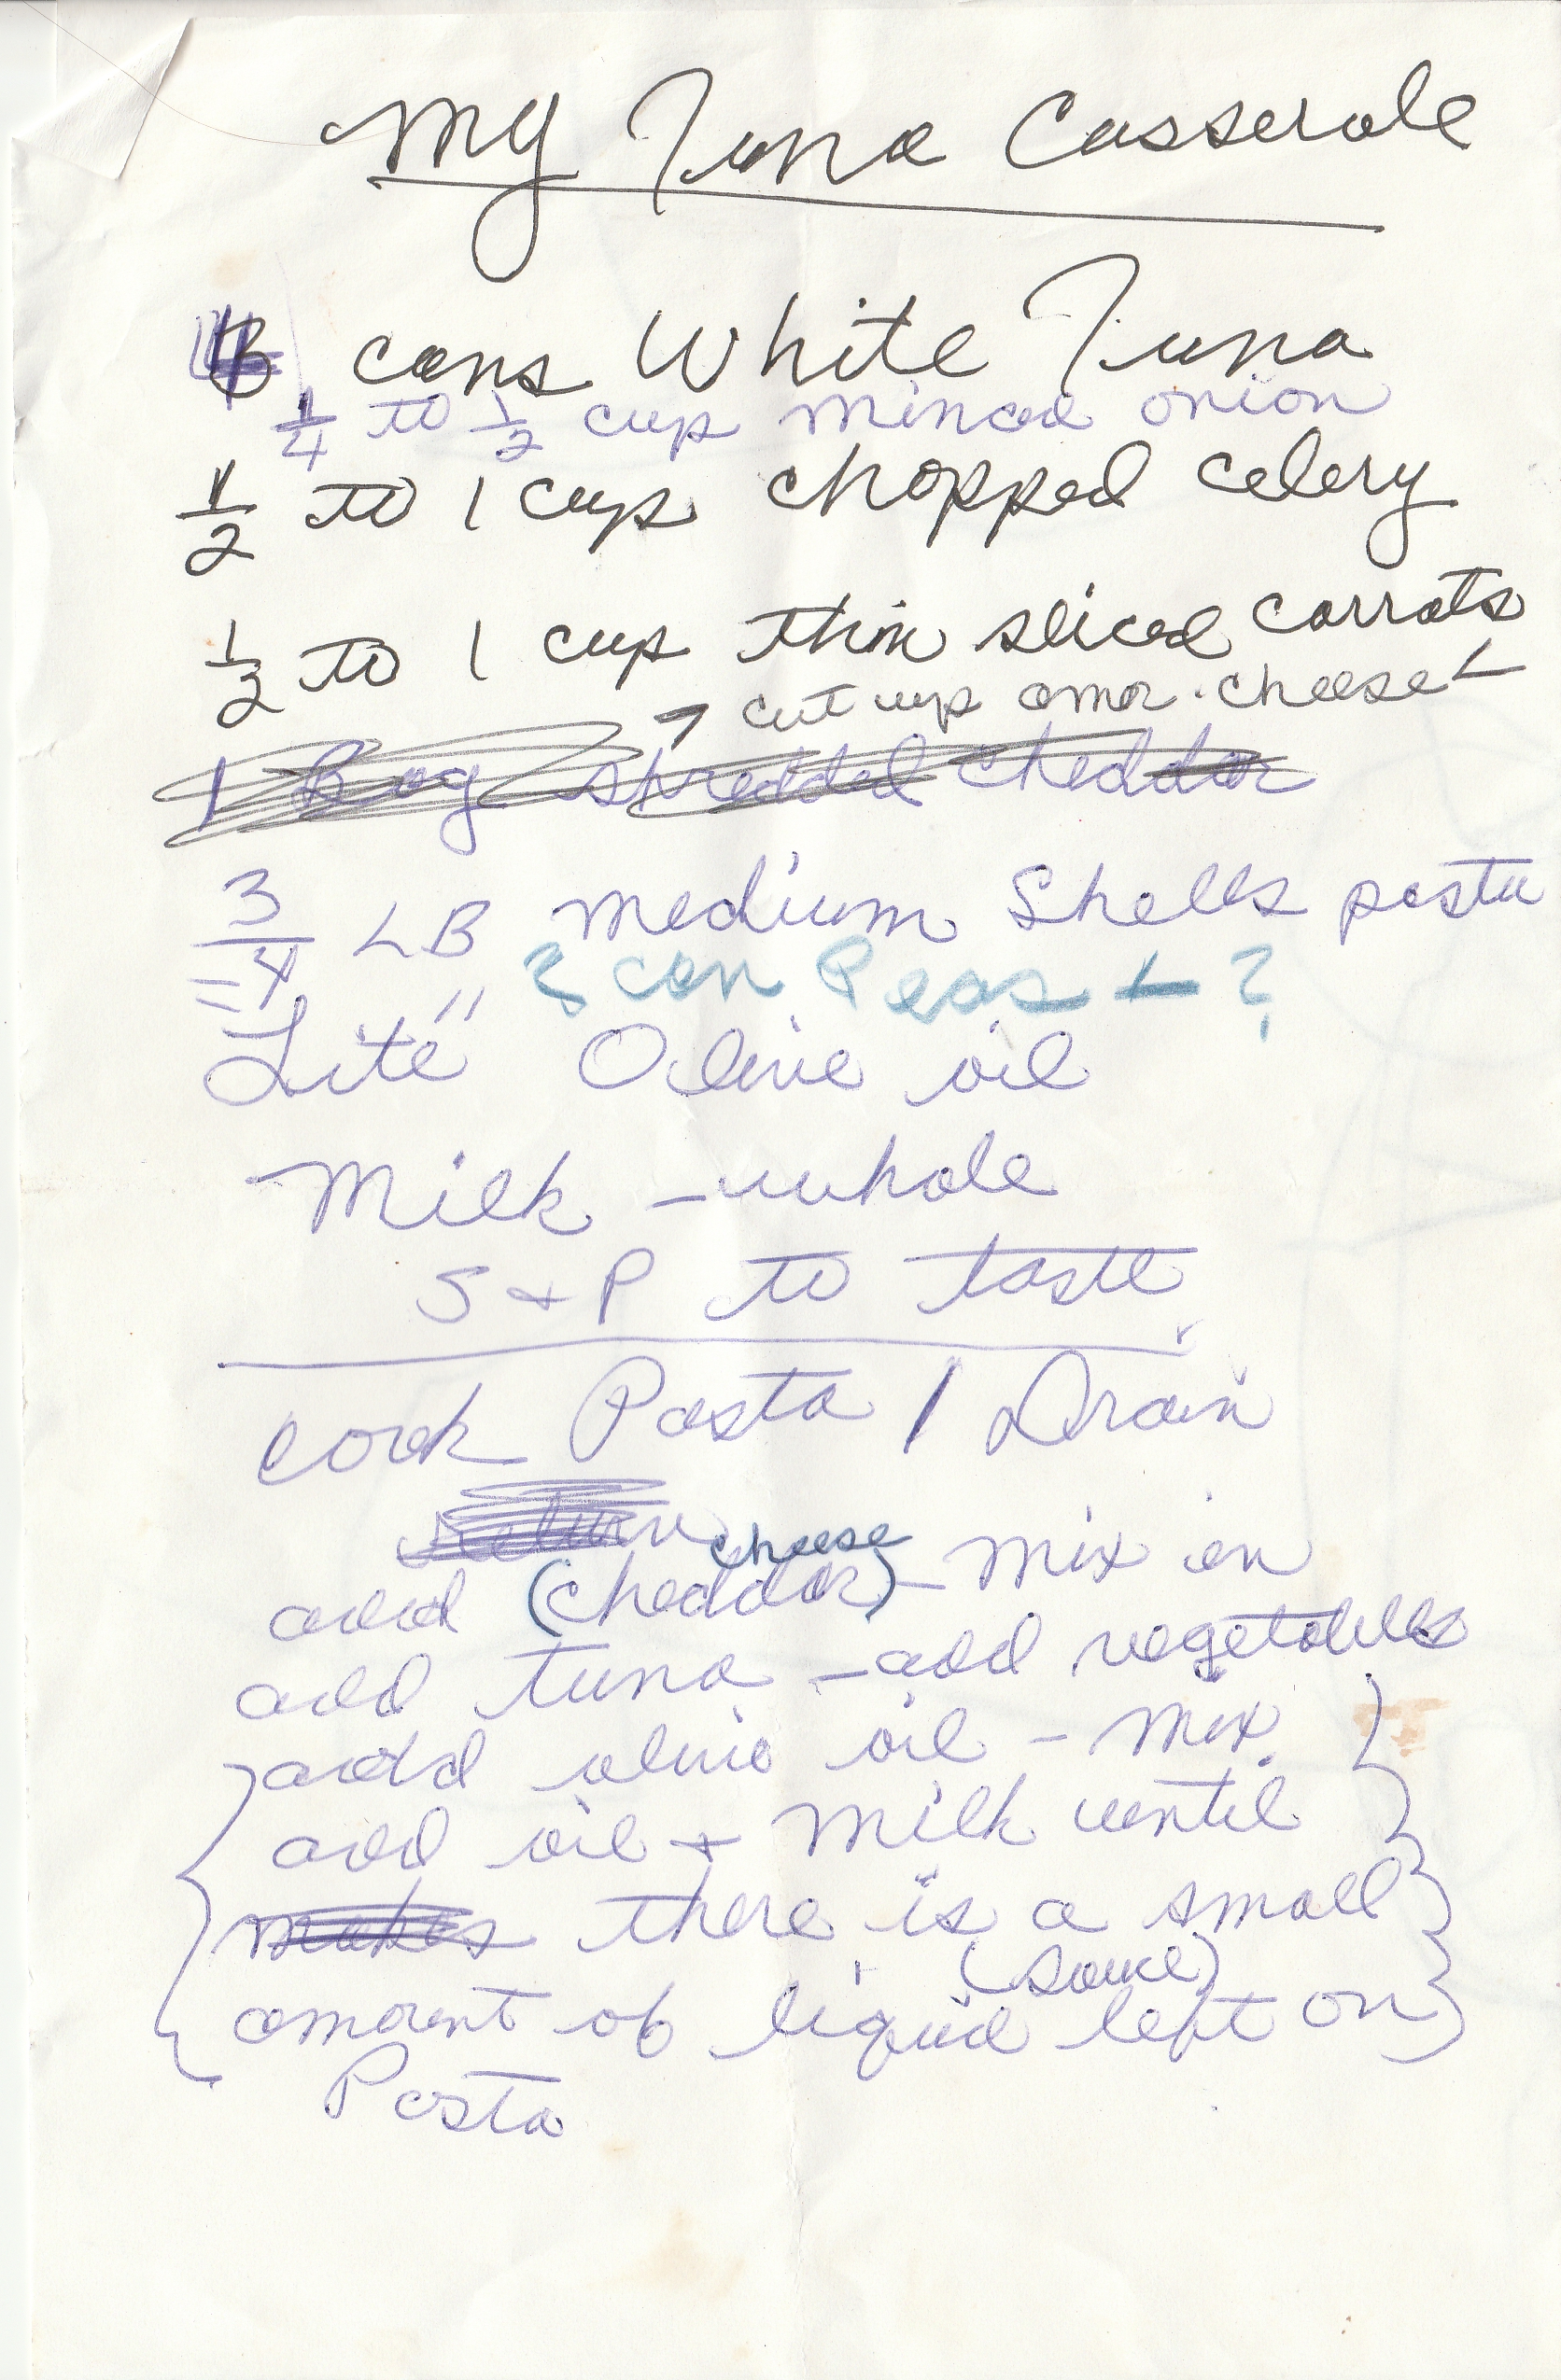 My Tuna Casserole
cans White Tuna
1/4 to 1/2 cup minced onion
1/2 to 1 cup chopped celery
1/2 to 1 cup thin sliced carrots
cut up amer. cheese
1 Bag shredded cheddar
3/4 LB medium Shells pasta
can Peas ?
"Lite" Olive oil
Milk - whole
S & P to taste
Cook Pasta / Drain
cheese
add (cheddar) - mix in
add tuna - add vegetables
add olive oil - mix.
add oil + milk until
makes there is a small
(sauce)
amount of liquid left on
Pasta